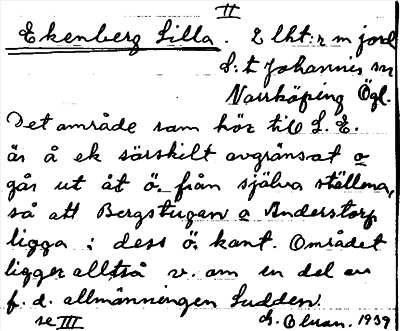 II
Ekenberg Lilla. 2 lht:r m jord
S:t Johannis sn
Norrköping Ögl.
Det område som hör till L. E.
är å ek särskilt avgränsat o
går ut åt ö. från själva ställena,
så att Bergstugan o Anderstorp
ligga i dess ö. kant. Området
ligger alltså v. om en del av
f. d. allmänningen Sudden.
se III G. Olsson. 1939